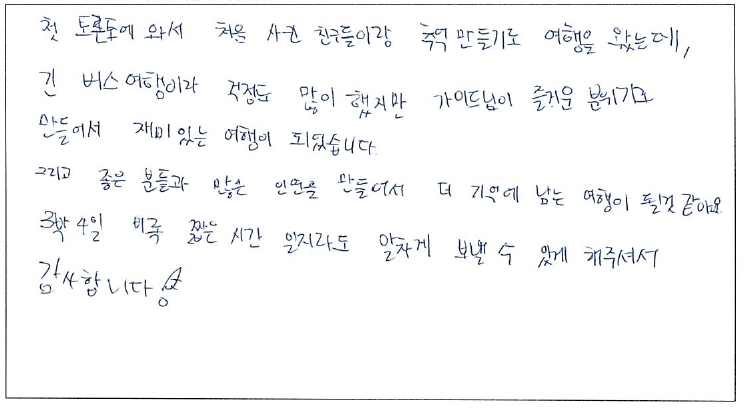 첫 토론토에 와서 처음 사귄 친구들이랑 추억 만들기로 여행을 왔는데,
긴 버스여행이라 걱정도 많이 했지만 가이드님이 즐거운 분위기로
만들어서 재미있는 여행이 되었습니다.
그리고 좋은 분들과 많은 인연을 만들어서 더 기억에 남는 여행이 될것 같아요
3박 4일 비록 짧은 시간 일지라도 알차게 보낼 수 있게 해주셔서
감사합니다